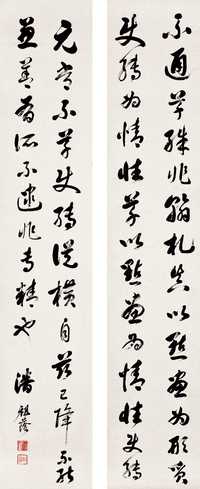 不通草殊非翰札真以點畫为形質
使轉为情性草以點畫为情性使轉
元常不草使轉縱橫自茲已降不能
兼善者所不逮非专精也 潘祖蔭